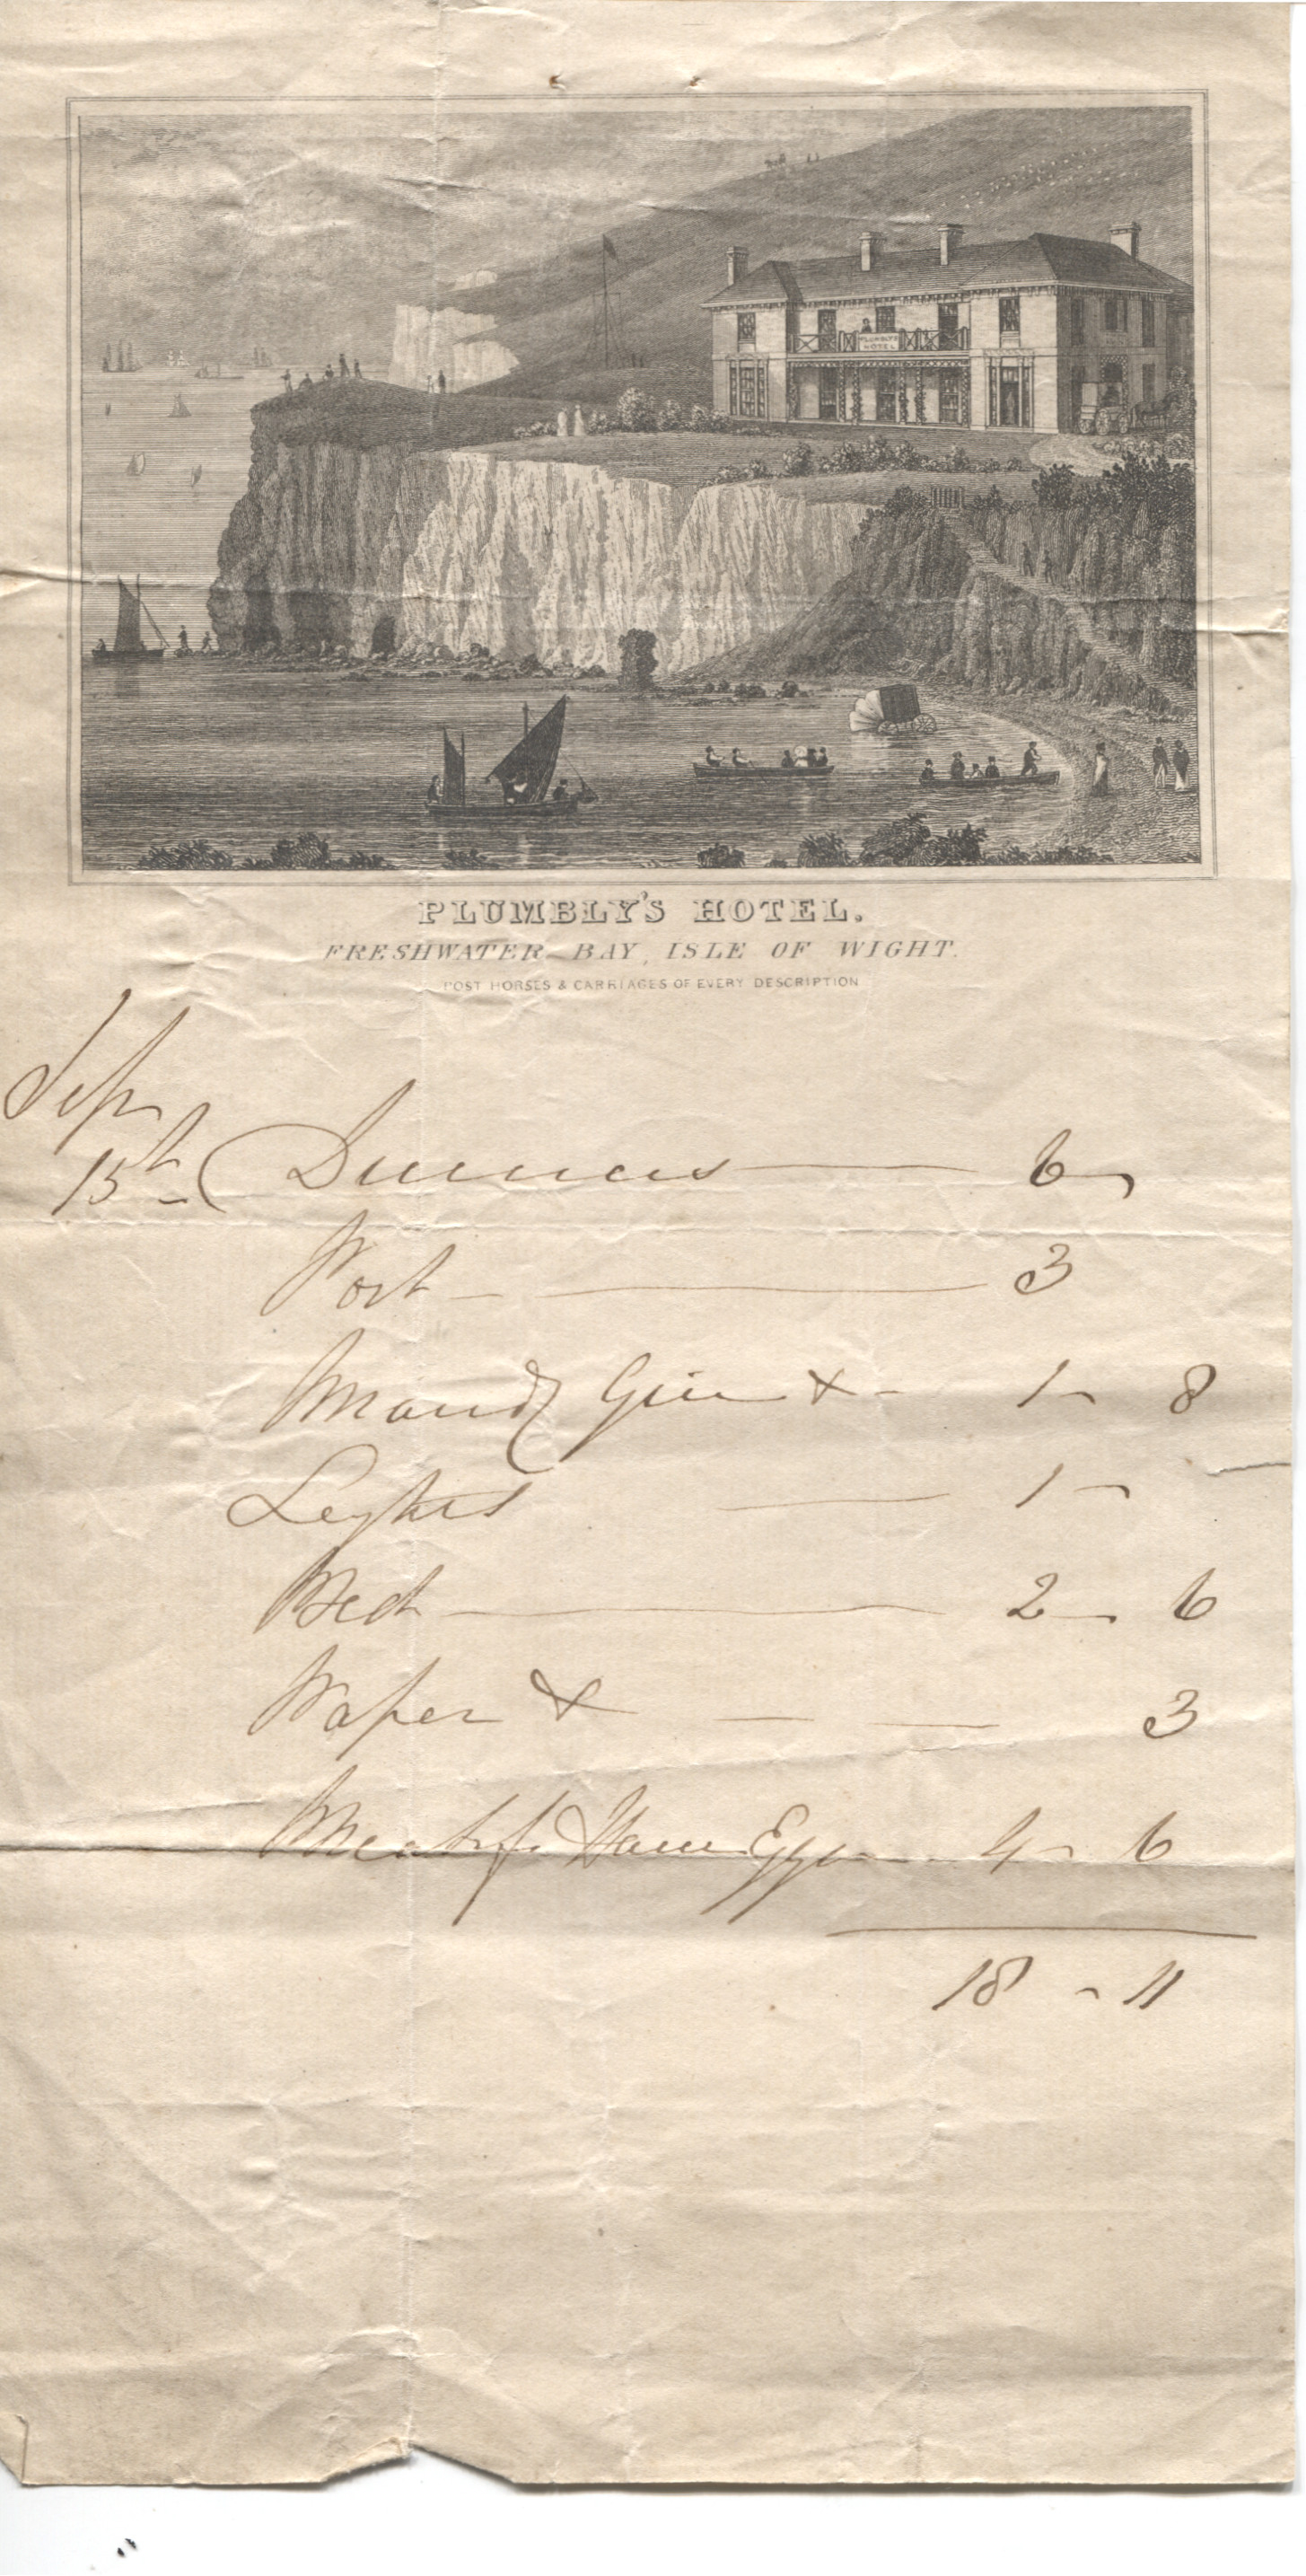 PLUMBLY'S HOTEL
PLUMBLY'S HOTEL.
FRESHWATER BAY, ISLE OF WIGHT.
POST HORSES & CARRIAGES OF EVERY DESCRIPTION
Sep
15th Dinners — 6 -
Port — 3
Brandy Gin & - 1 - 8
Lights — 1 -
Bed — 2 - 6
Paper & — — 3
Breakfs Ham Eggs — 4 - 6
18 - 11